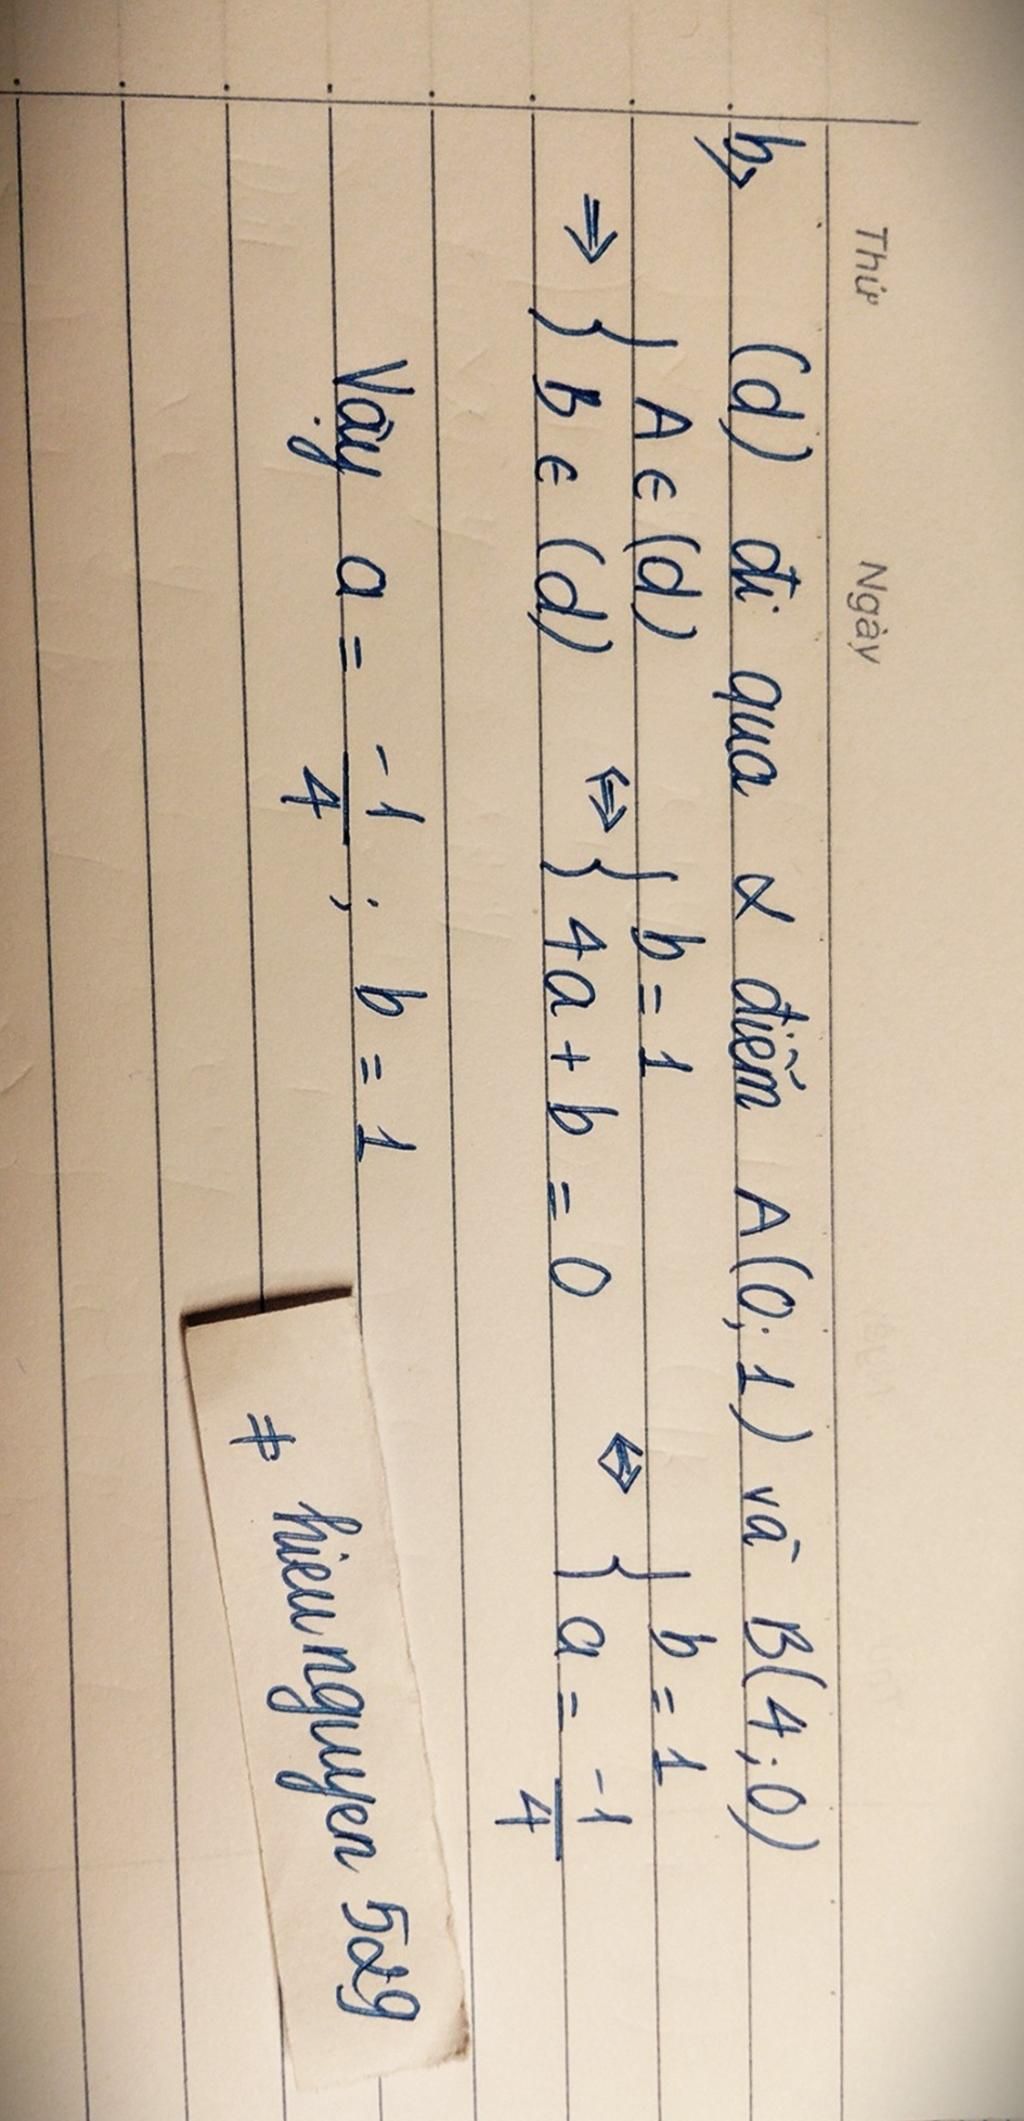 Thứ Ngày
b, (d) đi qua 2 điểm A(0;1) và B(4;0)
⇒ { A ∈ (d) ⇔ { b = 1 ⇔ { b = 1
B ∈ (d) 4a + b = 0 a = -1/4
Vậy a = -1/4 ; b = 1
# hieunguyen 529